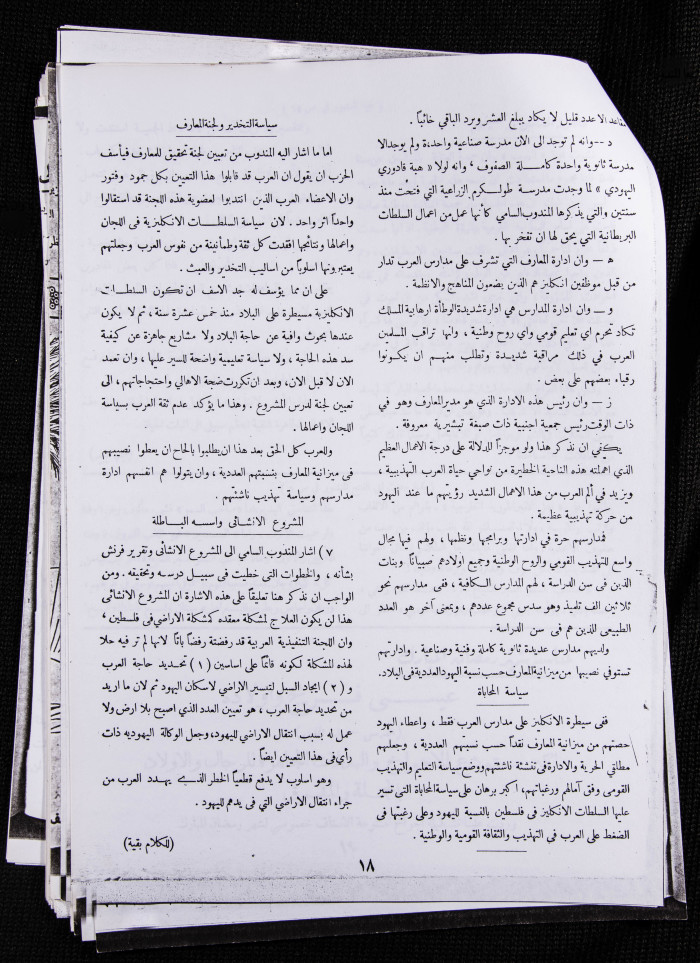 مقاعد الاعدد قليل لا يكاد يبلغ العشر ويرد الباقي خائباً .
د -- وانه لم توجد الى الان مدرسة صناعية واحدة، ولم يوجد الا
مدرسة ثانوية واحدة كاملة الصفوف ، وانه لولا « هبة قادوري
اليهودي » لما وجدت مدرسة طولكرم الزراعية التي فتحت منذ
سنتين والتي يذكرها المندوب السامي كأنها عمل من اعمال السلطات
البريطانية التي يحق لها ان تفخر بها .
ه — وان ادارة المعارف التي تشرف على مدارس العرب تدار
من قبل موظفين انكليز هم الذين يضعون المناهج والانظمة .
و — وان ادارة المدارس هي ادارة شديدة الوطأة ارهابية المسلك
تكاد تحرم اي تعليم قومي واي روح وطنية ، وانها تراقب المعلمين
العرب في ذلك مراقبة شديدة وتطلب منهم ان يكونوا
رقباء بعضهم على بعض .
ز — وان رئيس هذه الادارة الذي هو مدير المعارف وهو في
ذات الوقت رئيس جمعية اجنبية ذات صبغة تبشيرية معروفة .
يكفي ان نذكر هذا ولو موجزاً للدلالة على درجة الاهمال العظيم
الذي اهملته هذه الناحية الخطيرة من نواحي حياة العرب التهذيبية ،
ويزيد في ألم العرب من هذا الاهمال الشديد رؤيتهم ما عند اليهود
من حركة تهذيبية عظيمة .
فمدارسهم حرة في ادارتها وبرامجها ونظمها ، ولهم فيها مجال
واسع للتهذيب القومي والروح الوطنية وجميع اولادهم صبياناً وبنات
الذين في سن الدراسة ، لهم المدارس الكافية ، ففى مدارسهم نحو
ثلاثين الف تلميذ وهو سدس مجموع عددهم ، وبمعنى آخر هو العدد
الطبيعى للذين هم فى سن الدراسة .
ولديهم مدارس عديدة ثانوية كاملة وفنية وصناعية . وادارتهم
تستوفي نصيبها من ميزانية المعارف حسب نسبة اليهود العددية فى البلاد.
سياسة المحاباة
ففى سيطرة الانكليز على مدارس العرب فقط ، واعطاء اليهود
حصتهم من ميزانية المعارف نقداً حسب نسبتهم العددية ، وجعلهم
مطلقي الحرية والادارة فى تنشئة ناشئتهم ووضع سياسة التعليم والتهذيب
القومى وفق آمالهم ورغباتهم، اكبر برهان على سياسة المحاباة التى تسير
عليها السلطات الانكليز فى فلسطين بالنسبة لليهود وعلى رغبتها فى
الضغط على العرب فى التهذيب والثقافة القومية والوطنية .
سياسة التخدير ولجنة المعارف
اما ما اشار اليه المندوب من تعيين لجنة تحقيق للمعارف فيأسف
الحزب ان يقول ان العرب قد قابلوا هذا التعيين بكل جمود وفتور
وان الاعضاء العرب الذين انتدبوا لعضوية هذه اللجنة قد استقالوا
واحداً اثر واحد . لان سياسة السلطات الانكليزية فى اللجان
واعمالها ونتائجها افقدت كل ثقة وطمأنينة من نفوس العرب وجعلتهم
يعتبرونها اسلوباً من اساليب التخدير والعبث .
على ان مما يؤسف له جد الاسف ان تكون السلطات
الانكليزية مسيطرة على البلاد منذ خمس عشرة سنة ، ثم لا يكون
عندها بحوث وافية عن حاجة البلاد ولا مشاريع جاهزة عن كيفية
سد هذه الحاجة ، ولا سياسة تعليمية واضحة للسير عليها ، وان تعمد
الان لا قبل الان، وبعد ان تكررت ضجة الاهالي واحتجاجاتهم ، الى
تعيين لجنة لدرس المشروع . وهذا ما يؤكد عدم ثقة العرب بسياسة
اللجان واعمالها .
وللعرب كل الحق بعد هذا ان يطلبوا بالحاح ان يعطوا نصيبهم
فى ميزانية المعارف بنسبتهم العددية ، وان يتولوا هم انفسهم ادارة
مدارسهم وسياسة تهذيب ناشئتهم .
المشروع الانشائى واسسه الباطلة
٧ ) اشار المندوب السامي الى المشروع الانشائى وتقرير فرنش
بشأنه ، والخطوات التى خطيت فى سبيل درسه وتحقيقه . ومن
الواجب ان نذكر هنا تعليقاً على هذه الاشارة ان المشروع الانشائى
هذا لن يكون العلاج لمشكلة معقده كمشكلة الاراضي فى فلسطين ،
وان اللجنة التنفيذية العربية قد رفضته رفضاً باتاً لانها لم تر فيه حلا
لهذه المشكلة لكونه قائماً على اساسين ( ١ ) تحديد حاجة العرب
و ( ٢ ) ايجاد السبل لتيسير الاراضي لاسكان اليهود ثم لان ما اريد
من تحديد حاجة العرب ، هو تعيين العدد الذي اصبح بلا ارض ولا
عمل له بسبب انتقال الاراضي لليهود، وجعل الوكالة اليهوديه ذات
رأى فى هذا التعيين ايضاً .
وهو اسلوب لا يدفع قطعياً الخطر الذى يهدد العرب من
جراء انتقال الاراضي التى فى يدهم لليهود .
(للكلام بقية)
١٨